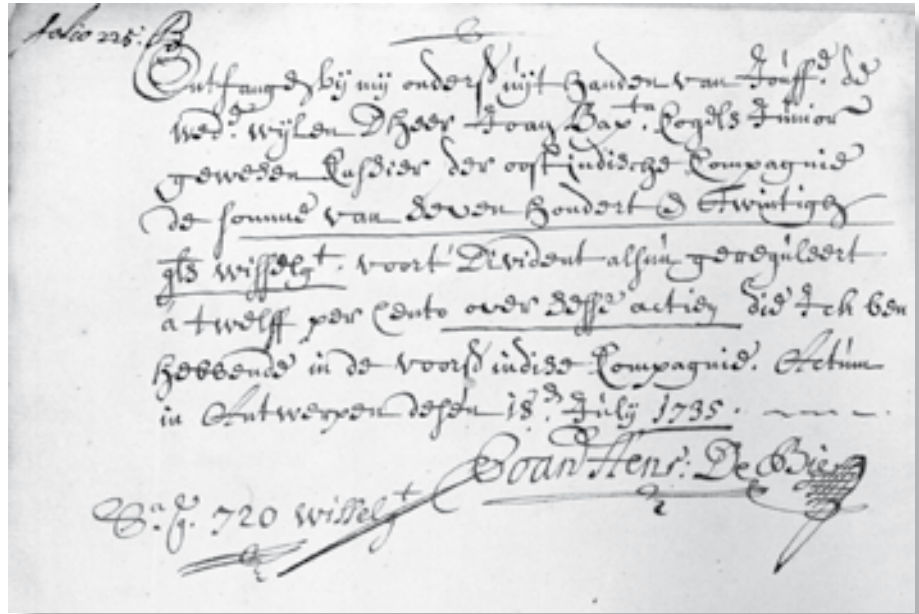 folio 225.
Ontfangen bij mij onders. uijt handen van Jouff.e de
wed.e wijlen Dheer Joan Bap.ta Cogels Junior
gewesen Cassier der oostindische Compagnie
de somme van seven hondert & twintigh
gls wisselg.t voort' Divident alhier gereguleert
a twelff per Cento over sesse actien die Ick ben
hebbende in de voors. indise Compagnie. Actum
in Antwerpen desen 18.n July 1735.
Joan Henr: De Bie
S.a g. 720 wisselg.t